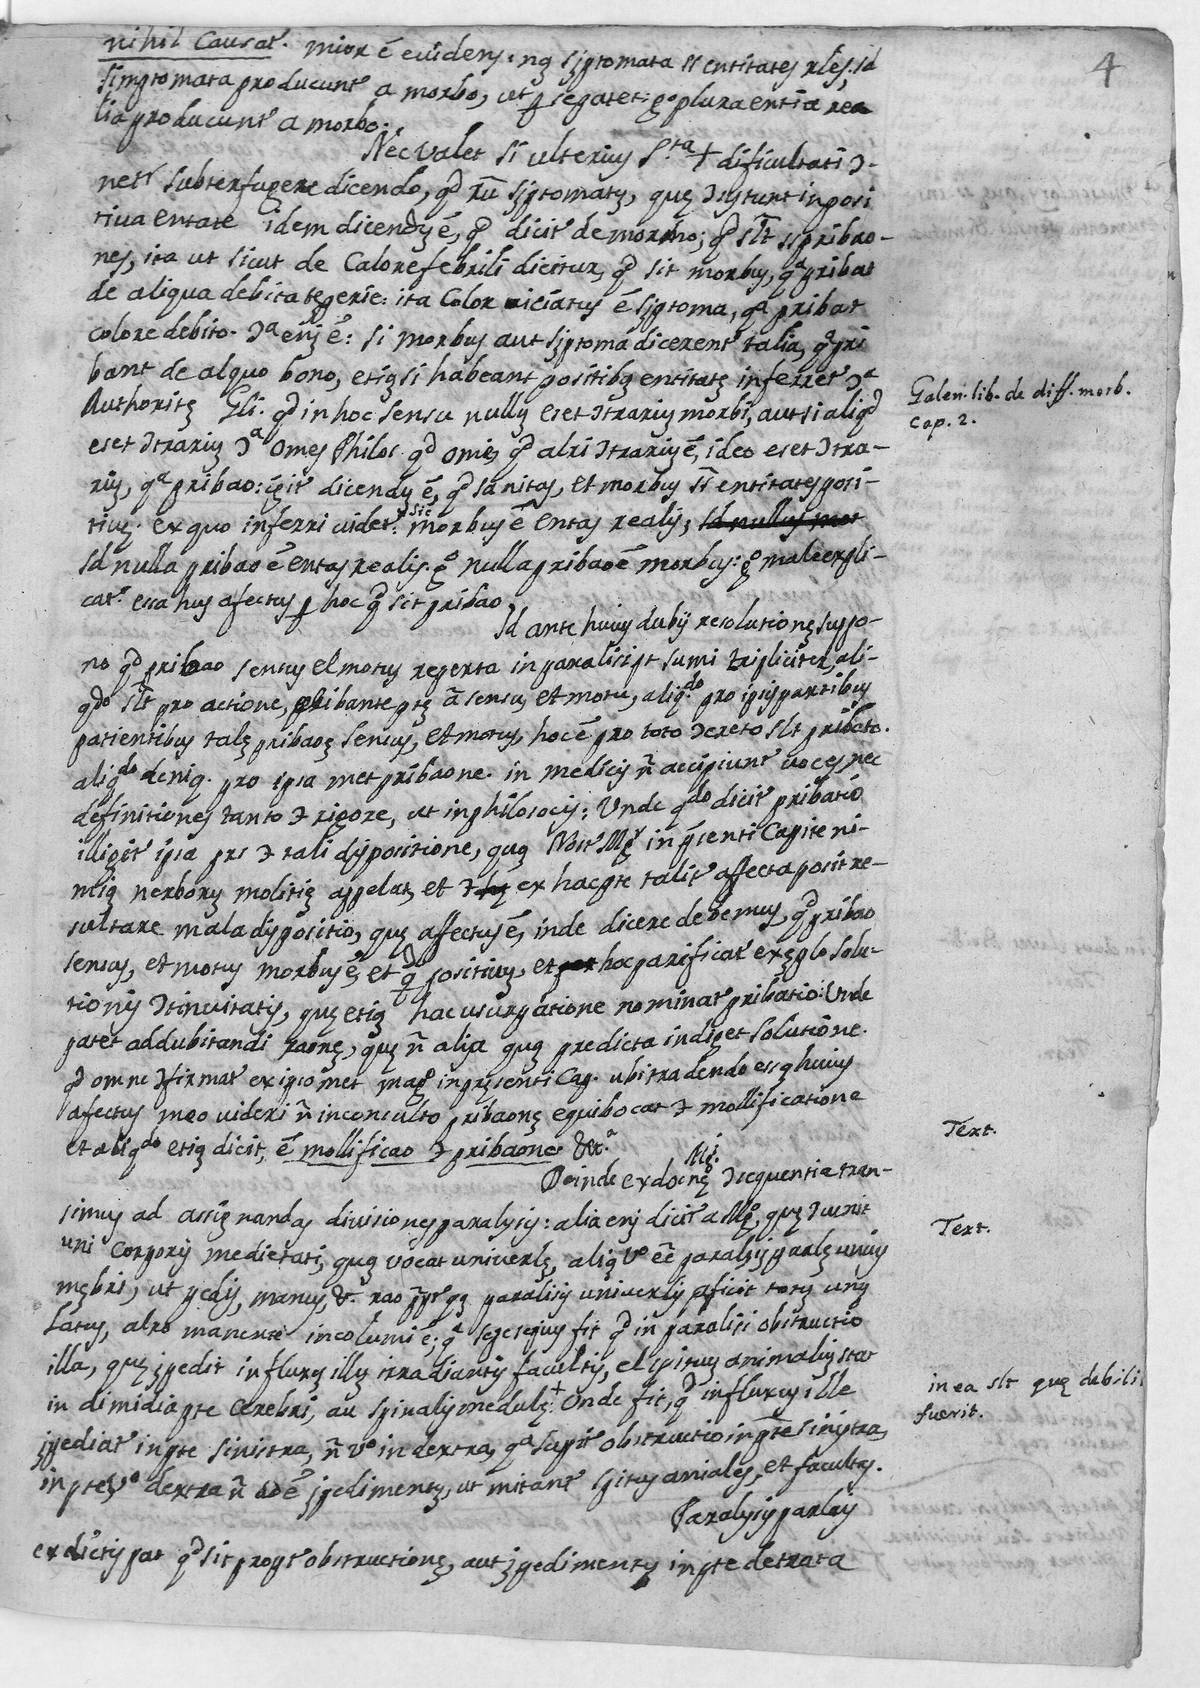 4
nihil Causat. mior ē euidens. nā sȳptomata st entitates rles, sd
simptomata producunt a morbo, ut ꝑ se patet: gº plura entia rea
lia producunt a morbo.
Nec valet si ulterius dificultati
subterfugere dicendo, qd sȳptomatz, in posi
tiua entate idem dicendȳ ē, qd dicit de morbo; qd slt st pribao-
nes, ita ut sicut de Calore febrili dicitur, qd sit morbus, qª pribat
de aliqua debita tēperie: ita Color uiciatus ē sȳptoma, qª pribat
colore debito. ē: si morbus aut sȳptoma dicerent talia, qª pri
bant de alquo bono, etiā si habeant positibā entitatē inferret
Authoritē Gli. qd in hoc sensu nullȳ eset Ↄtrariȳ morbi, aut si aliqd
eset Ↄtrariȳ Omes Philos. qd omē, qd alri Ↄtrariȳ ē, ideo eset Ↄtra-
riȳ, qª pribao: dicendȳ ē, qd sanitas, et morbus st entitates posi-
tiuȩ. ex quo inferri uidet. sic morbus ē entas realis; sd nullus mor
sd nulla pribao ē entas realis. gº nulla pribao ē morbus: gº male expli-
cat. esa hus afectus ꝑ hoc qd sit pribao.
Sd ante huius dubij resolutionē suppo-
no qd pribao sensus et motus reperta in paralisi pt sumi tripliciter, ali-
qdo slt pro actione, pribante ptē a sensu, et motu, aliqdo pro ipsis partibus
patientibus talē pribaoē sensus, et motus, hoc ē pro toto Ↄcreto slt pribato.
aliqdo deniq. pro ipsa met pribaone. in medicis n̄ accipiunt uoces nec
definitiones tanto Ↄ rigore, ut in philosocis: Unde qdo dicit pribatio
ipsa prs Ↄ tali dispositione, quā Nost Mḡ in p̄senti Capite ni-
miā nerborȳ molitiē appelat, et ex hac pte talit affecta posit re-
sultare mala dispositio, quȩ affectus ē, inde dicere debemus, qd pribao
sensus, et motus morbus ē, et qd positiuus, et hoc parificat exēplo solu-
tionis Ↄtinuitatis, quȩ etiā hac usurpatione nominat pribatio: Unde
patet addubitandi raonē, quȩ n̄ alia quā predicta indiget solutione.
qd omne Ↄfirmat ex ipsomet magº in presenti Cap. ubi tradendo esā huius
afectus meo uideri n̄ inconsulto pribaonē equibocat Ↄ mollificatione
et aliqdo etiā dicit, ē mollificao Ↄ pribaone &cª
Deinde ex docnē Mḡ. Ↄsequentia tran-
simus ad assignandas divisiones paralysis: alia enȳ dicit a Mgº, quȩ Ↄuenit
uni Corporis medietati, quā vocat univerlē, aliā vº eē paralysȳ parlē unius
mēbri, ut pedis, manus, &. rao ppt quā paralisis univerlis aficit totȳ unȳ
latus, altro manente incolumi ē; qª fit qd in paralisi obstructio
illa, quȩ īpedit influxȳ illȳ irradiantis facultis, et spirituȳ animaliȳ stat
in dimidia pte Cerebri, au spinalis medulȩ. + Unde fit, qd influxus ille
īpediat in pte sinistra, n̄ vº in dextra, qª supᵗ obstructio in pte sinistra,
in pte vº dextra n̄ adē īpedimentȳ, ut mitant spitus aniales, et facultas.
Paralysis parlis
ex dictis pat qd sit propt obstructionē, aut īpedimentȳ in pte detrata
Galen. lib. de diff. morb.
cap. 2.
Text.
Text.
in ea slt quȩ debili
fuerit.